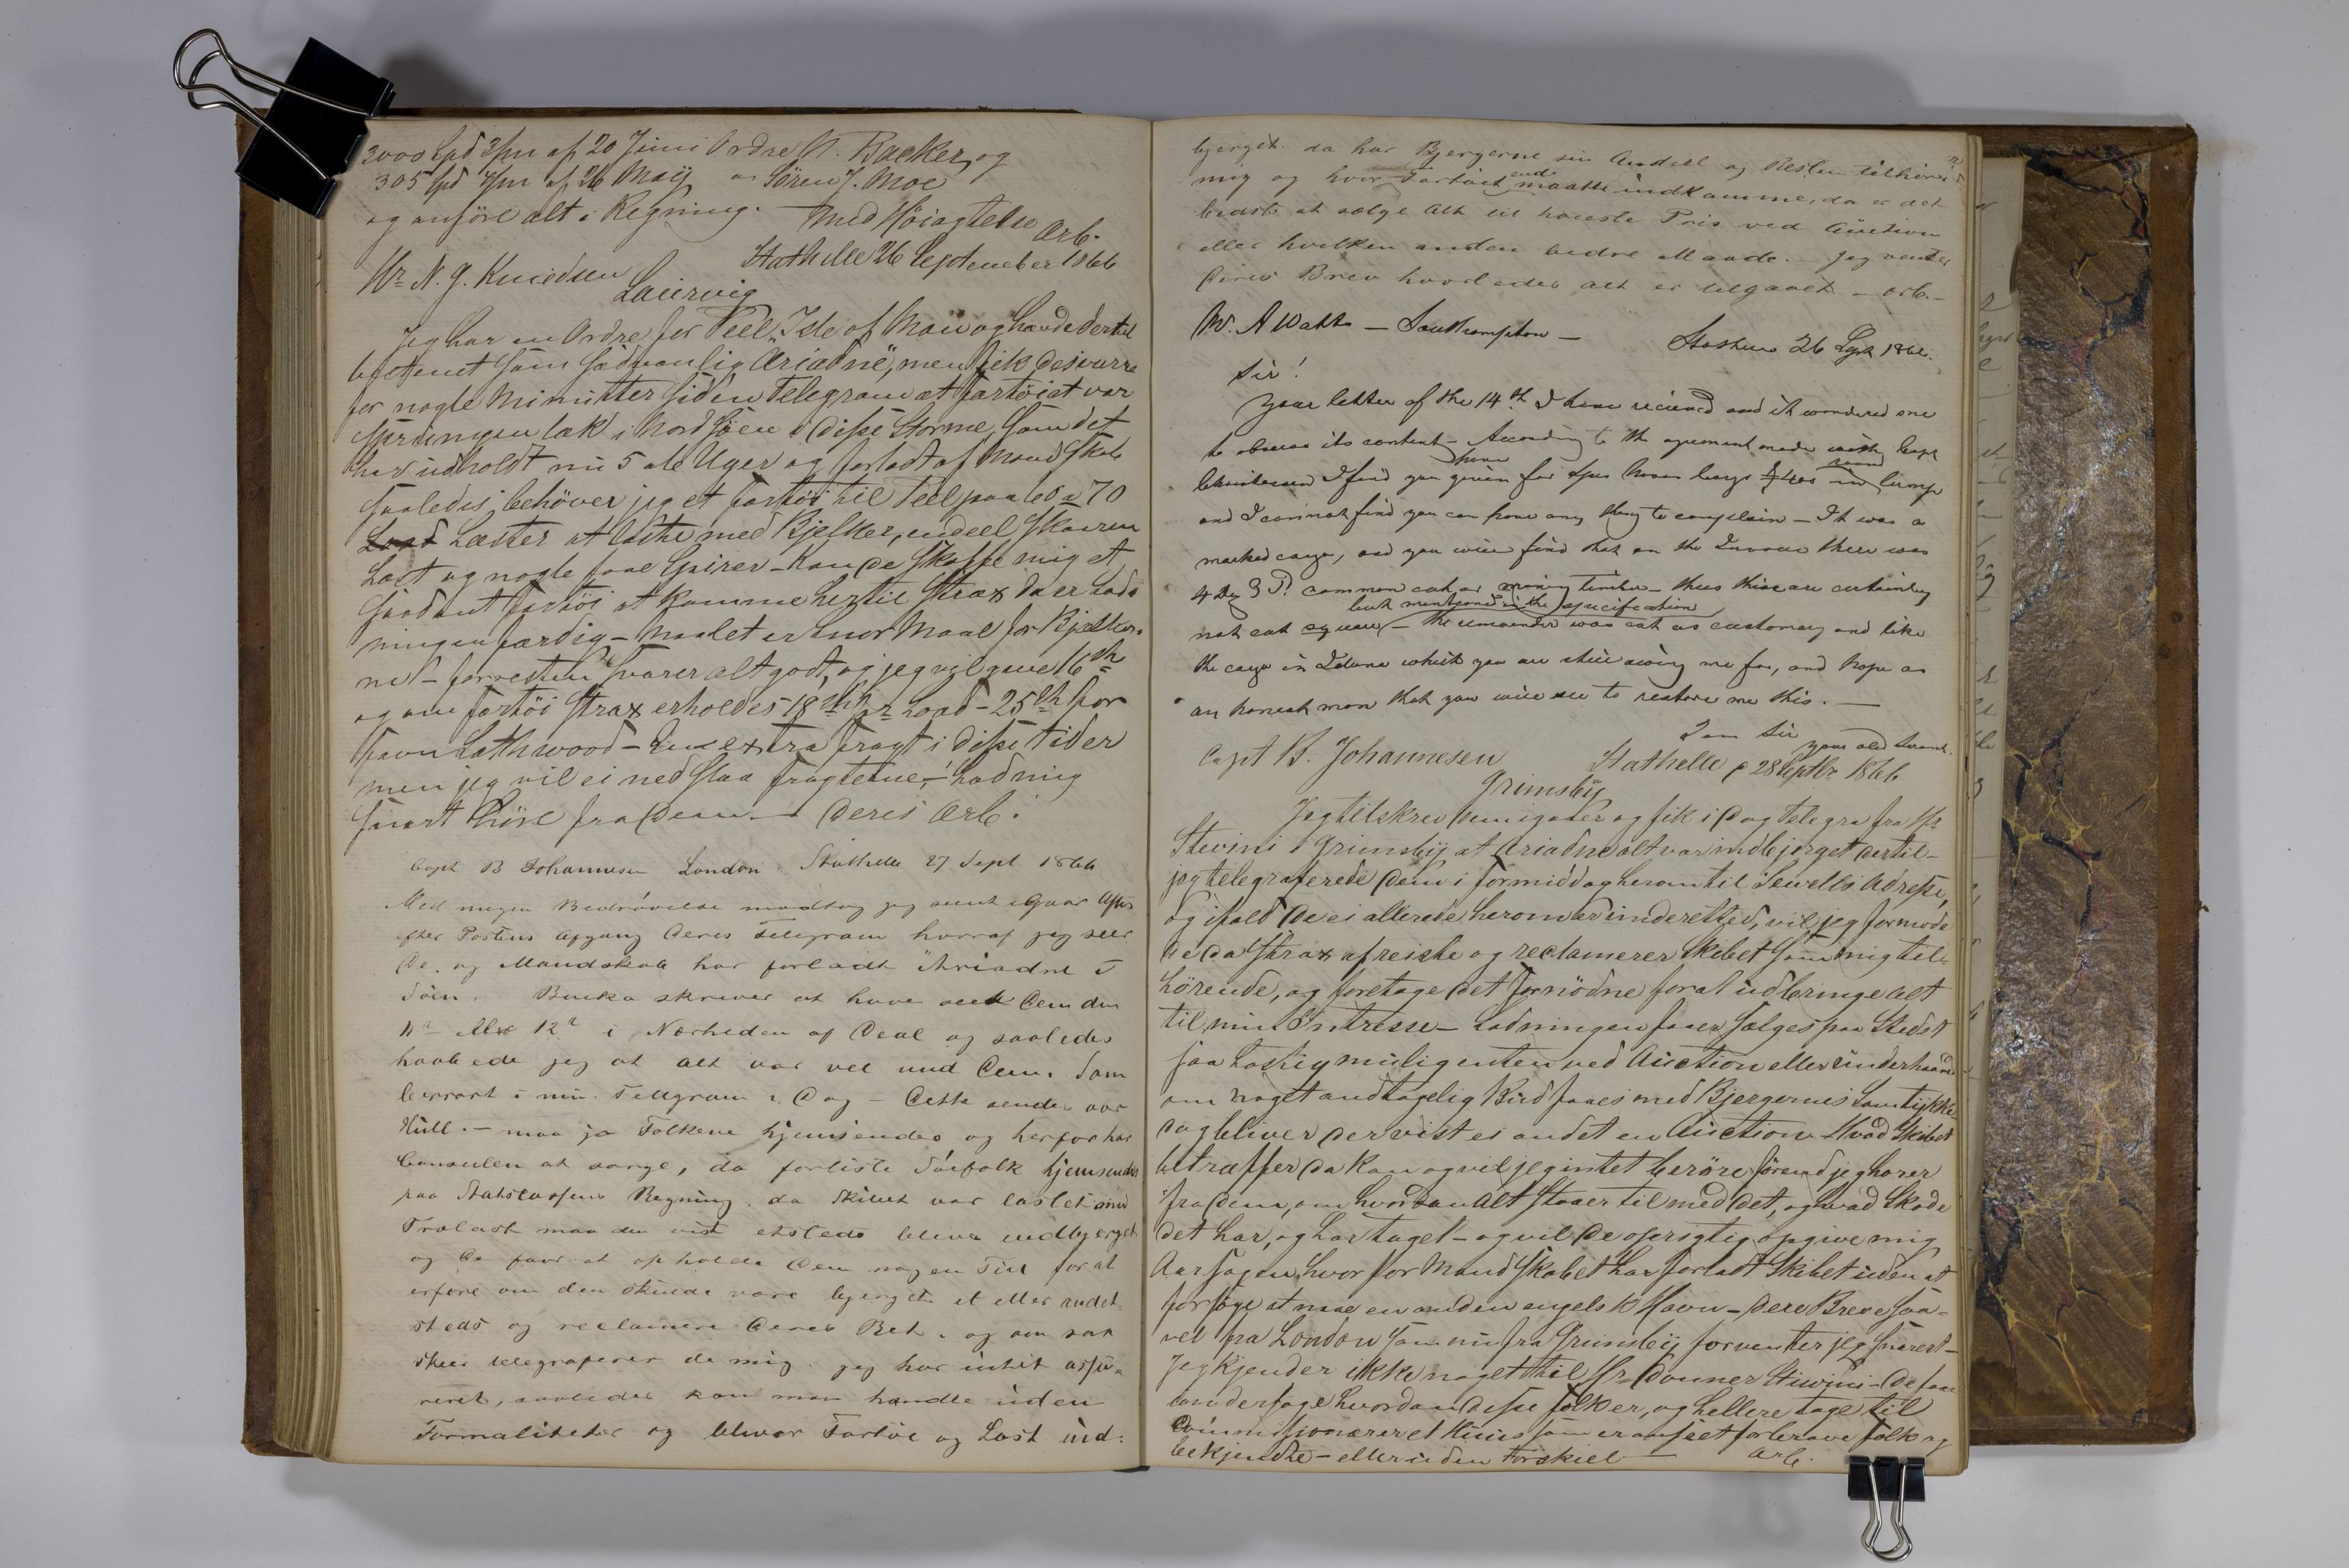 3000 Spd 3/m af 20 Juni Ordre A. Backer, og
305 Spd 4/m af 26 Maij " Sören J. Moe
og anföre alt i Regning. — Med Höiagtelse Arb.
Stathelle 26 September 1866
Hr N. J. Knudsen
Laurvig
Jeg har en Ordre for Peel, Isle of Man og havde dertil
bestemt som sædvanlig Ariadne, men fik desværre
for nogle Minutter siden Telegram at Fartöiet var
sprungen læk i Nordsjöen i disse Storme, som det
har udholdt nu 5 Uger og forladt af Mandskab
Saaledes behöver jeg et Fartöi til Peel paa 60 a 70
Læster at laste med Bjelker, endeel Skaaren
Last og nogle faae Spirer – Kan De skaffe mig et
saadant Fartöi at komme hertil strax da er Lad-
ningen færdig – Maalet er Snor Maal for Bjelker-
ne – forresten svarer alt godt, og jeg vil give 16 sh
og om Fartöi strax erholdes 18 sh pr Load – 25 sh for
Favn Lathwood – En extra Fragt i disse tider
men jeg vil ei nedslaa Fragterne, – Lad mig
snart höre fra Dem — Deres Arb.
Capt B Johannesen London Stathelle 27 Sept 1866
Med megen Bedrövelse modtog jeg sent igaar Aftes
efter Postens Afgang Deres Telegram hvoraf jeg seer
De og Mandskab har forladt Ariadne i
Söen. Backa skriver at have seet Dem den
11te 12te i Nærheden af Deal og saaledes
haabede jeg at alt var vel med Dem. Som
besvart i min Telegram i Dag – Dette sendes over
Hull. – maa jo Folkene hjemsendes og herfor har
Consulen at sørge, da forliste Söefolk hjemsendes
paa Statscassens Regning. da Skibet var lastet med
Trælast maa den vist etsteds blive indbjerget
og De faar at opholde Dem nogen Tid for at
erfare om den skulde være bjerget et eller andet-
steds og reclamere Deres Ret. og om saa
skeer telegraferer de mig. jeg har intet assu-
reret, saaledes kan man handle uden
Formaliteter og bliver Fartöi og Last ind-
bjerget. da har Bjergerne sin Andeel og Resten tilhører
mig og hvor Fartöiet end maatte indkomme, da er det
bedst at sælge Alt til høieste Pris ved Auction
eller hvilken anden bedre Maade. – Jeg venter
Deres Brev hvorledes alt er tilgaaet – Arb. –
Mr. A Watts — Southampton —
26 Sept 1866.
Sir!
Your letter of the 14th I have recieved and it wondered me
to observe its content – According to the agreement made with Capt
Christensen I find you have given for
and I cannot find you can have any thing to complain – It was a
marked cargo, and you will find that on the Invoice there was
common cut or mining timber – these are certainly
but mentioned in the specification
not cut square – the remainder was cut as customary and like
the cargo in Iduna which you are still owing me for, and hope as
an honest man that you will see to restore me this. —
I am Sir
your obd Servant.
Capt B. Johannesen
Stathelle p 28 Septbr 1866
Grimsby
Jeg tilskrev Dem igaar og fik i Dag Telegra fra Hr
Stivini i Grimsby at Ariadne alt var indbjerget dertil –
jeg telegraferede Dem i Formiddag herom til Sewells Adresse,
og ifald De ei allerede herom er underettet, vil jeg formode
De da strax afreiste og reclamerer Skibet som mig til-
hörende, og foretage det fornödne for at udbringe alt
til min Intresse – Ladningen faaer sælges paa Stedet
saa hastig mulig enten ved Auction eller underhaand
om noget antagelig Bud faaes med Bjergernes Samtykke
da bliver der vist ei andet en Auction – Hvad Skibet
betræffer da kan og vil jeg intet beröre förend jeg hörer
fra Dem, om hvordan Alt staaer til med det, og hvad Skade
det har, og har taget – og vil De oprigtig opgive mig
Aarsagen, hvorfor Mandskabet har forladt Skibet uden at
forsöge at naae en anden engelsk Havn – Dere Breve saa-
vel fra London som nu fra Grimsby forventer jeg snarest –
Jeg kjender ikke noget til Hr Stivini – De faar
undersöge hvordan disse Folk er, og hellere tage til
Commissionærer et Huus som er anseet for brave Folk og
bekjendte – eller uden Forskiel — Arb.